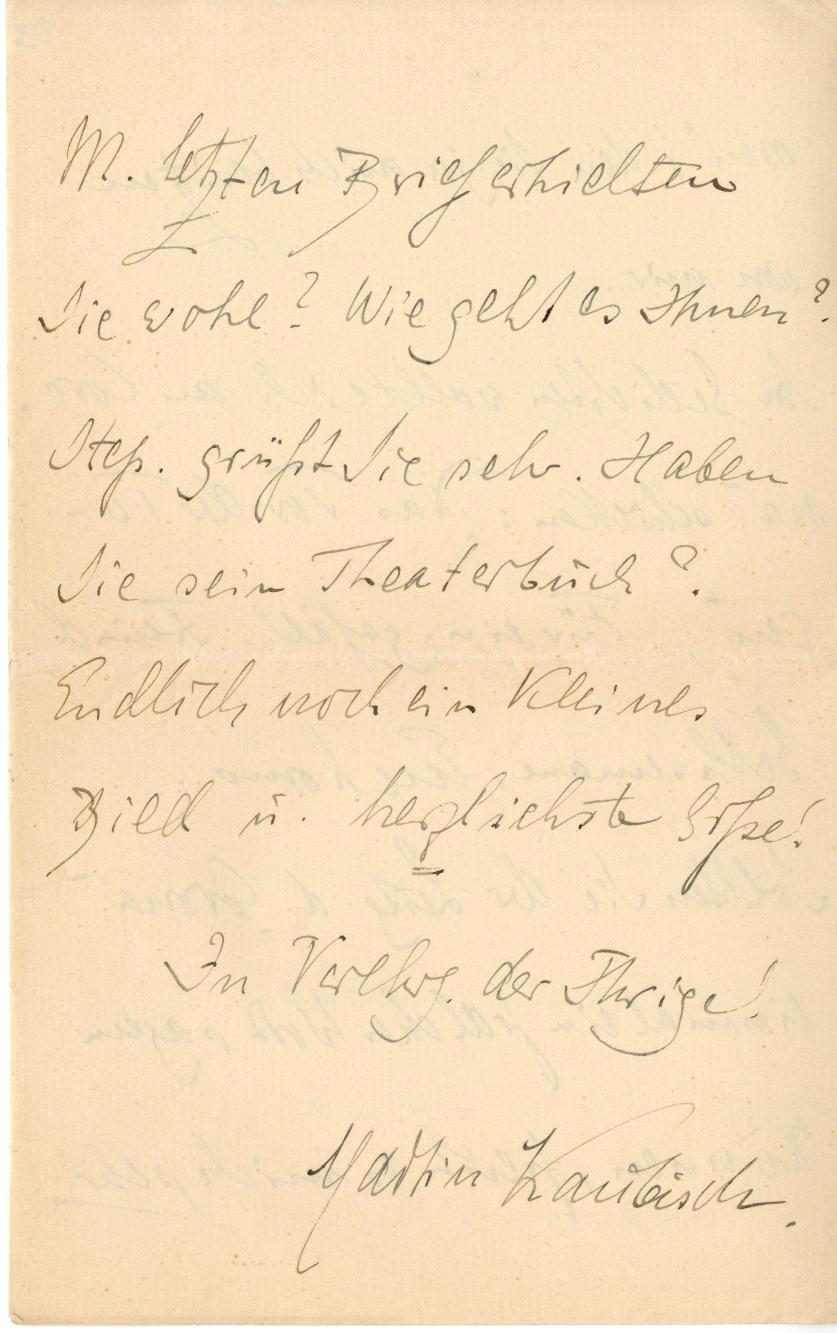 M. letzten Brief erhielten
Sie wohl? Wie geht es Ihnen?
Step. grüßt Sie sehr. Haben
Sie sein Theaterbuch?
Endlich noch ein kleines
Bild u. herzlichste Grße!
In Verehrg. der Ihrige!
Martin Kaubisch.